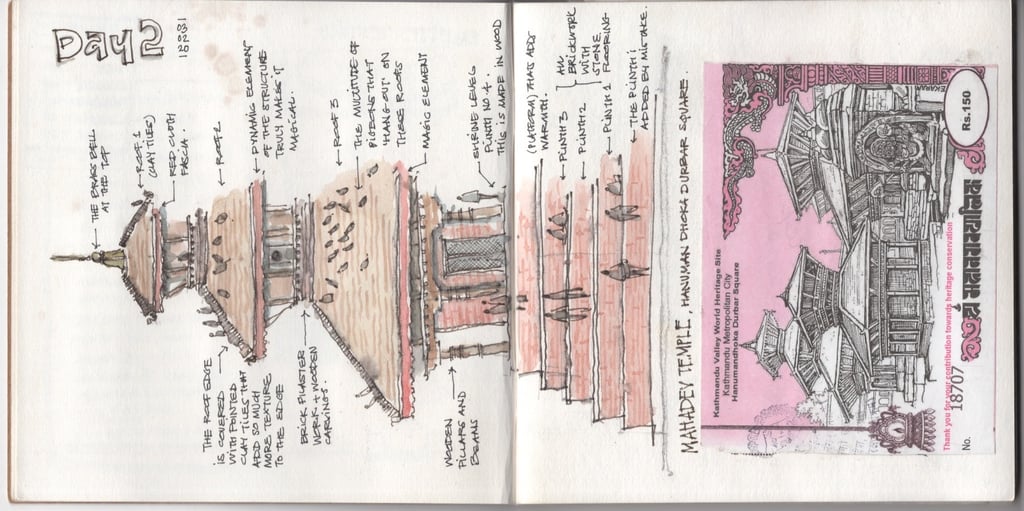 Day 2
THE BRASS BELL
AT THE TOP
ROOF 1
(CLAY TILES)
RED CLOTH
FASCIA.
ROOF 2
DYNAMIC ELEMENT
OF THE STRUCTURE
TRULY MAKES IT
MAGICAL.
ROOF 3
THE MULTITUDE OF
PIGEONS THAT
'HANG OUT' ON
THESE ROOFS
MAGIC ELEMENT
SHRINE LEVEL
PLINTH NO 4.
THIS IS MADE IN WOOD
(PLATFORM) THAT ADDS
WARMTH.
PLINTH 3
PLINTH 2
PLINTH 1
ALL
BRICKWORK
WITH
STONE
FLOORING.
THE PLINTH I
ADDED BY MISTAKE.
THE ROOF EDGE
IS COVERED
WITH POINTED
CLAY TILES THAT
ADD SO MUCH
MORE TEXTURE
TO THE EDGE
BRICK PILASTER
WORK + WOODEN
CARVINGS.
WOODEN
PILLARS AND
BEAMS
MAHADEV TEMPLE, HANUMAN DHOKA DURBAR SQUARE.
Kathmandu Valley World Heritage Site
Kathmandu Metropolitan City
Hanumandhoka Durbar Square
Rs.150
Thank you for your contribution towards heritage conservation
No. 18707